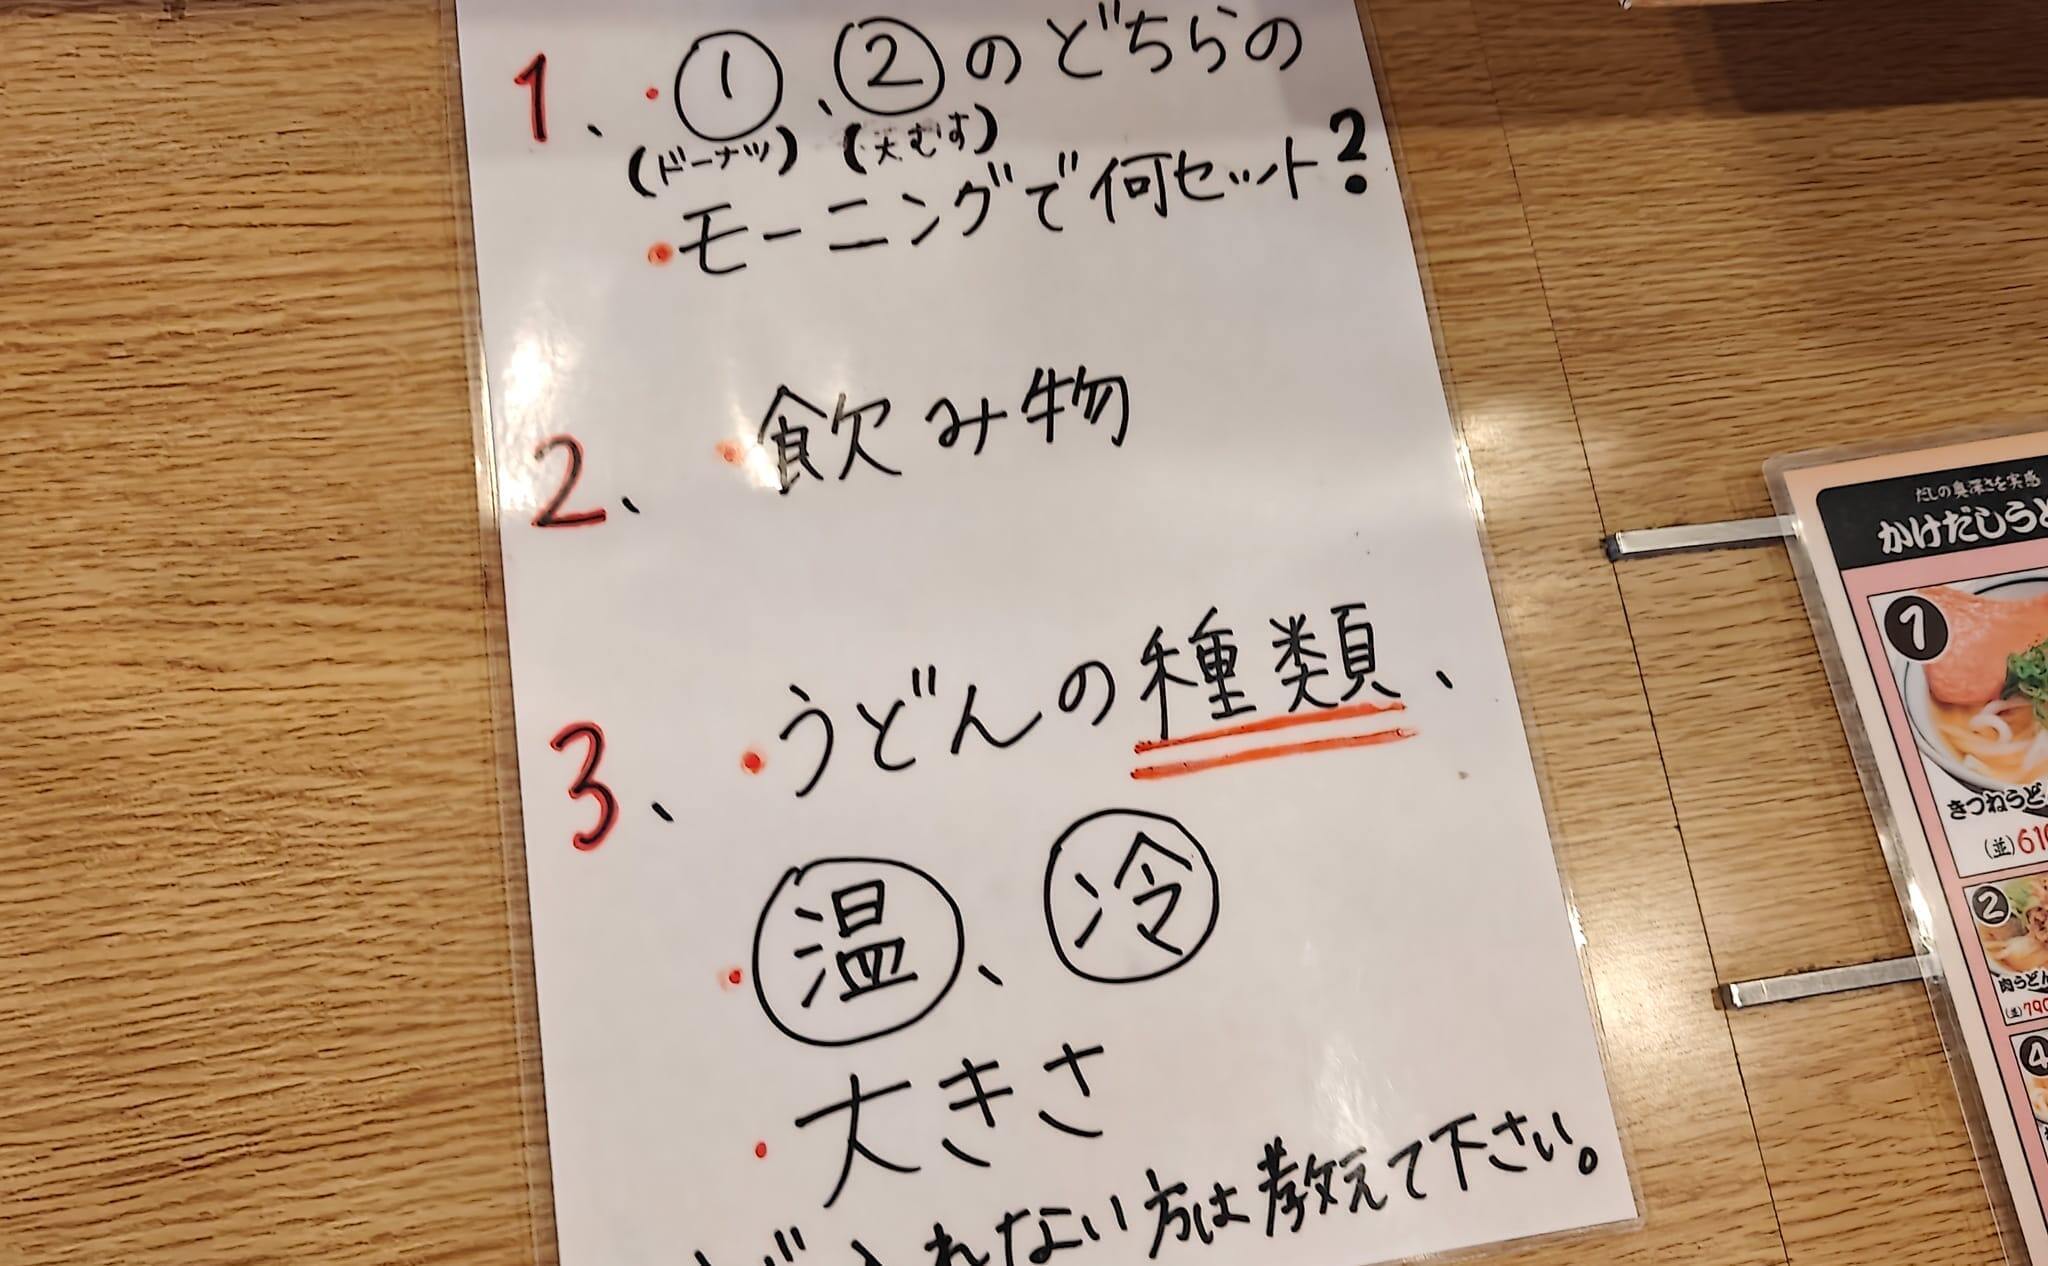 1、・①、②のどちらの
(ドーナツ) (天むす)
・モーニングで何セット?
2、・飲み物
3、・うどんの種類、
・温、冷
・大きさ
入れない方は教えて下さい。
だしの奥深さを実感
かけだしうど
1
きつねうどん
(並)61
2
肉うどん
(並)790
4